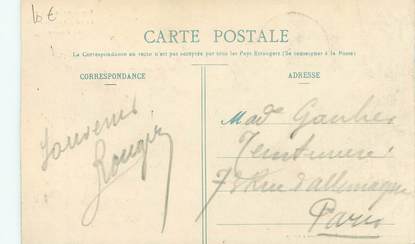 10 €
CARTE POSTALE
La Correspondance au recto n'est pas acceptée par tous les Pays Etrangers (Se renseigner à la Poste)
CORRESPONDANCE
ADRESSE
Souvenir
Mad
78 Rue d'allemagne
Paris